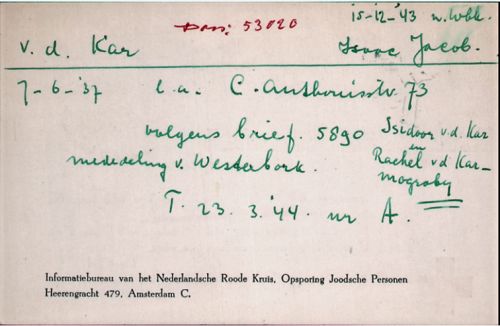 Doss: 53020
15-12-'43 n. Wbk.
v. d. Kar Isaac Jacob.
7-6-'37 l.a. C. Anthonisstr. 73
volgens brief. 5890 Isidoor v.d. Kar
en
mededeling v. Westerbork. Rachel v d Kar-
Mogroby
T. 23. 3. '44. nr A.
Informatiebureau van het Nederlandsche Roode Kruis, Opsporing Joodsche Personen
Heerengracht 479, Amsterdam C.